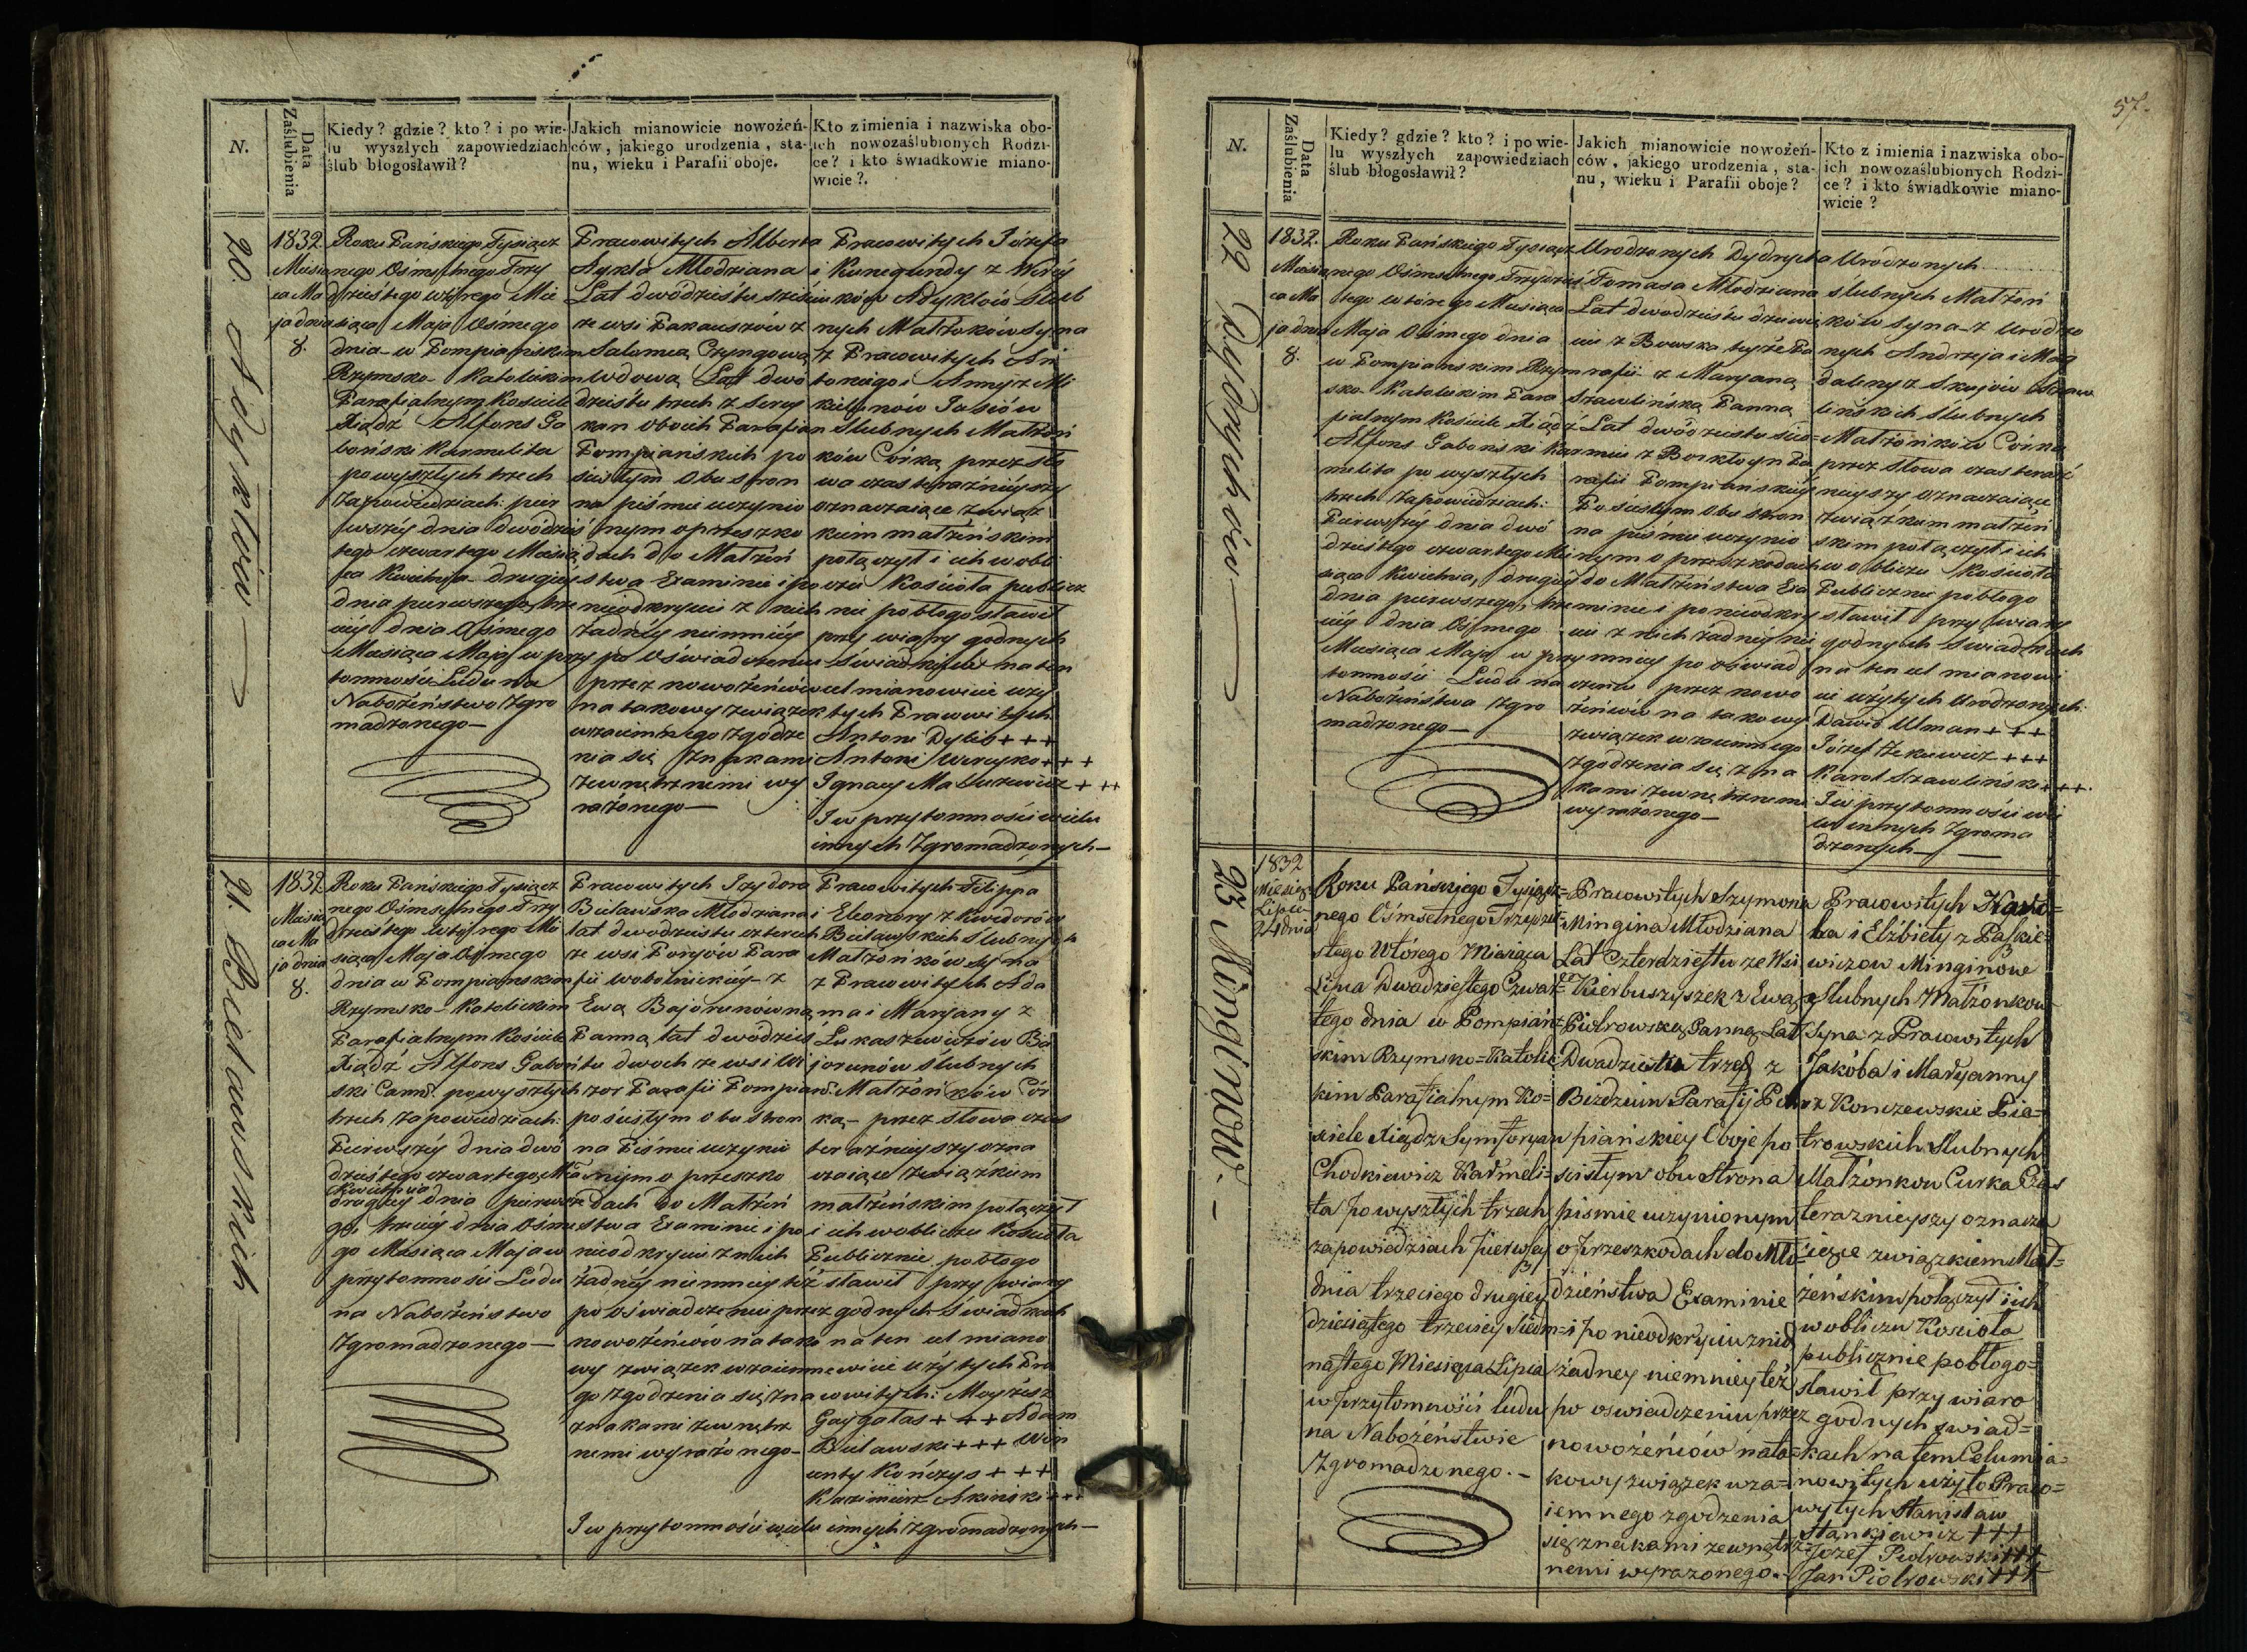 N.
Data Zaślubienia
Kiedy? gdzie? kto? i po wie-
lu wyszłych zapowiedziach
ślub błogosławił?
Jakich mianowicie nowożeń-
ców, jakiego urodzenia, sta-
nu, wieku i Parafii oboje.
Kto z imienia i nazwiska obo-
ich nowozaślubionych Rodzi-
ce? i kto świadkowie miano-
wicie?.
20.
1832
Miesią
ca Ma
ja dnia
8.
Roku Pańskiego Tysiącz
nego Ośmsetnego Trzy
dziestego wtórego Mie
siąca Maja Ośmego
dnia w Pompiańskim
Rzymsko-Katolickim
Parafialnym Kościele
Xiądź Alfons Ga
boński Karmelita
po wyszłych trzech
zapowiedziach: pier
wszéy dnia dwódzies
tego czwartego Miesią
ca Kwietnia drugiéy
dnia pierwszego, trze
ciéy dnia Ośmego
Miesiąca Maja w przy
tomności Ludu na
Nabożeństwo Zgro
madzonego—
Pracowitych Alberta
Młodziana
Lat dwódziestu sześciu
ze wsi z
Salomeą Czyngową
Wdową Lat dwó
dziestu trzech z
oboich Parafian
Pompiańskich po
ścisłym Obu stron
na piśmie uczynio
nym o przeszko
dach do Małżeń
stwa Examinie i po
nieodkryciu z nich
żadnéy niemniéy
po oświadczeniu
przez nowożeńców
na takowy związek
wzaiemnego zgodze
nia się znakami
zewnętrznemi wy
rażonego—
Pracowitych Józefa
i Kunegundy z
ślub
nych Małżoków syna
z Pracowitych An
toniego i Anny z Mi
Ślubnych Małżoń
ków Córką przez sło
wa czas teraźnieyszy
oznaczaiące związ
kiem małżeńskim
połączył i ich w obli
czu Kościoła publicz
nie pobłogosławił
przy wiary godnych
Świadkach na ten
cel mianowicie uży
tych Pracowitych
Antoni Dylis +++
Antoni +++
Ignacy +++
I w przytomności wielu
innych Zgromadzonych—
21. Bielawskich
1832
Miesią
ca Ma
ja dnia
8.
Roku Pańskiego Tysiącz
nego Ośmsetnego Trzy
dziestego wtórego Mie
siąca Maja Ośmego
dnia w Pompiańskim
Rzymsko-Katolickim
Parafialnym Kościele
Xiądź Alfons Gaboń
ski Carm. po wyszłych
trzech zapowiedziach:
Pierwszéy dnia dwó
dziestego czwartego Mca
Kwietnia
drugiéy dnia pierwsze
go, trzeciéy dnia Ośme
go Miesiąca Maja w
przytomności Ludu
na Nabożeństwo
Zgromadzonego—
Pracowitych Izydora
Bielawska Młodziana
lat dwodziestu czterech
ze wsi Para
fii z
Ewą Bajorunówną
Panną lat dwodzies
tu dwoch ze wsi
Parafii Pompian.
po ścisłym obu stron
na Piśmie uczynio
nym o przeszko
dach do Małżeń
stwa Examinie i po
nieodkryciu z nich
żadnéy niemniey też
po oświadczeniu przez
nowożeńców na tako
wy związek wzaiemne
go zgodzenia się zna
znakami zewnętrz
nemi wyrażonego—
Pracowitych Filippa
i Eleonory z
Bielawskich Ślubnych
Małżonków syna
z Pracowitych Ada
ma i Maryany z
Łukaszewiczów Ba
jorunów ślubnych
Małżonków Cór
ką— przez słowa czas
teraźnieyszy ozna
czaiące związkiem
małżeńskim połączył
i ich w obliczu Kościoła
Publicznie pobłogo
sławił przy wiary
godnych Świadkach
na ten cel miano
wicie użytych Pra
cowitych: Moyżesz
Gaygałas +++ Adam
Bielawski +++ Win
centy Kończys +++
Kazimierz +++
I w przytomności wielu innych zgromadzonych—
57.
N.
Data Zaślubienia
Kiedy? gdzie? kto? i po wie-
lu wyszłych zapowiedziach
ślub błogosławił?
Jakich mianowicie nowożeń-
ców, jakiego urodzenia, sta-
nu, wieku i Parafii oboje?
Kto z imienia i nazwiska obo-
ich nowozaślubionych Rodzi-
ce? i kto świadkowie miano-
wicie?
22 Dydrychów
1832.
Miesią
ca Ma
ja dnia
8.
Roku Pańskiego Tysiącz
nego Ośmsetnego Trzydzies
tego wtórego Miesiąca
Maja Ośmego dnia
w Pompiańskim Rzym
sko-Katolickim Para
fialnym Kościele Xiądź
Alfons Gaboński Kar
melita po wyszłych
trzech Zapowiedziach:
Pierwszéy dnia dwó
dziestego czwartego Mie
siąca Kwietnia, drugiéy
dnia pierwszego, trze
ciéy dnia Ośmego
Miesiąca Maja w przy
tomności Ludu na
Nabożeństwo Zgro
madzonego—
Urodzonych Dydrycha
Tomasa Młodziana
Lat dwodziestu dziewię
ciu z Bowska teyże Pa
rafii z Maryaną
Szawlińską Panną
Lat dwódziestu sied
miu z Pa
rafii Pompiańskiéy
Po ścisłym Obu stron
na piśmie uczynio
nym o przeszkodach
do Małżeństwa Exa
minie i po nieodkry
ciu z nich żadnéy nie
mniey po oświad
czeniu przez nowo
żeńców na takowy
związek wzaiemnego
zgodzenia się zna
kami zewnętrznemi
wyrażonego—
Urodzonych
ślubnych Małżoń
ków syna z Urodzo
nych Andrzeja i Mag
daleny z Szaw
lińskich Ślubnych
Małżonków Córką
przez słowa czas teraź
nieyszy oznaczaiące
związkiem małżeń
skim połączył i ich
w obliczu Kościoła
Publicznie pobłogo
sławił przy wiary
godnych Świadkach
na ten cel mianowi
cie użytych Urodzonych:
Dawid Ulman +++
Józef +++
Karol Szawliński +++.
I w przytomności wie
lu innych Zgroma
dzonych—
23 Minginow.—
1832
Miesiąc
Lipca
24 dnia
Roku Pańskiego Tysiącz=
nego Ośmsetnego Trzydzie=
stego Wtórego Miesiąca
Lipca Dwadziestego Czwar=
tego dnia w Pompiań=
skim Rzymsko=Katolic
kim Parafialnym Ko=
sciele Xiądz Symforyan
Chodkiewicz Karmeli=
ta po wyszłych trzech
zapowiedziach pierwszey
dnia trzeciego drugiey
dziesiątego trzeciey siedm=
nastego Miesiąca Lipca
w przytomności ludu
na Nabożeństwie
Zgromadzonego.—
Pracowitych Szymona
Mingina Młodziana
Lat Czterdziestu ze Wsi
Kierbuszyszek z Ewą
Piotrowską Panną Lat
Dwadziestu trzech z
Parafij Pom
piańskiey Oboje po
scisłym obu Strona
pismie uczynionym
o przeszkodach do Mło
dzieństwa Examinie
i po nieodkryciu znich
żadney niemniey też
po oswiadczeniu przez
nowożeńców nata=
kowy związek wza=
iemnego zgodzenia
się znakami zewnętrz=
nemi wyrazonego.—
Pracowitych
ba i Elżbiety z Paskie=
wiczow Minginow
Slubnych Małżonkow
Syna z Pracowitych
Jakóba i Maryanny
z Pio=
trowskich Slubnych
Małżonkow Curka Czas
teraznieyszy oznacza
iące związkiem Mał=
żeńskim połączył i ich
w obliczu Kosciola
publicznie pobłogo=
sławił przy wiaro
godnych swiad=
kach na tem Celu mia=
nowitych użyto Praco=
wytych Stanisław
Stankiewicz +++
Jozef Piotrowski +++
Jan Piotrowski +++